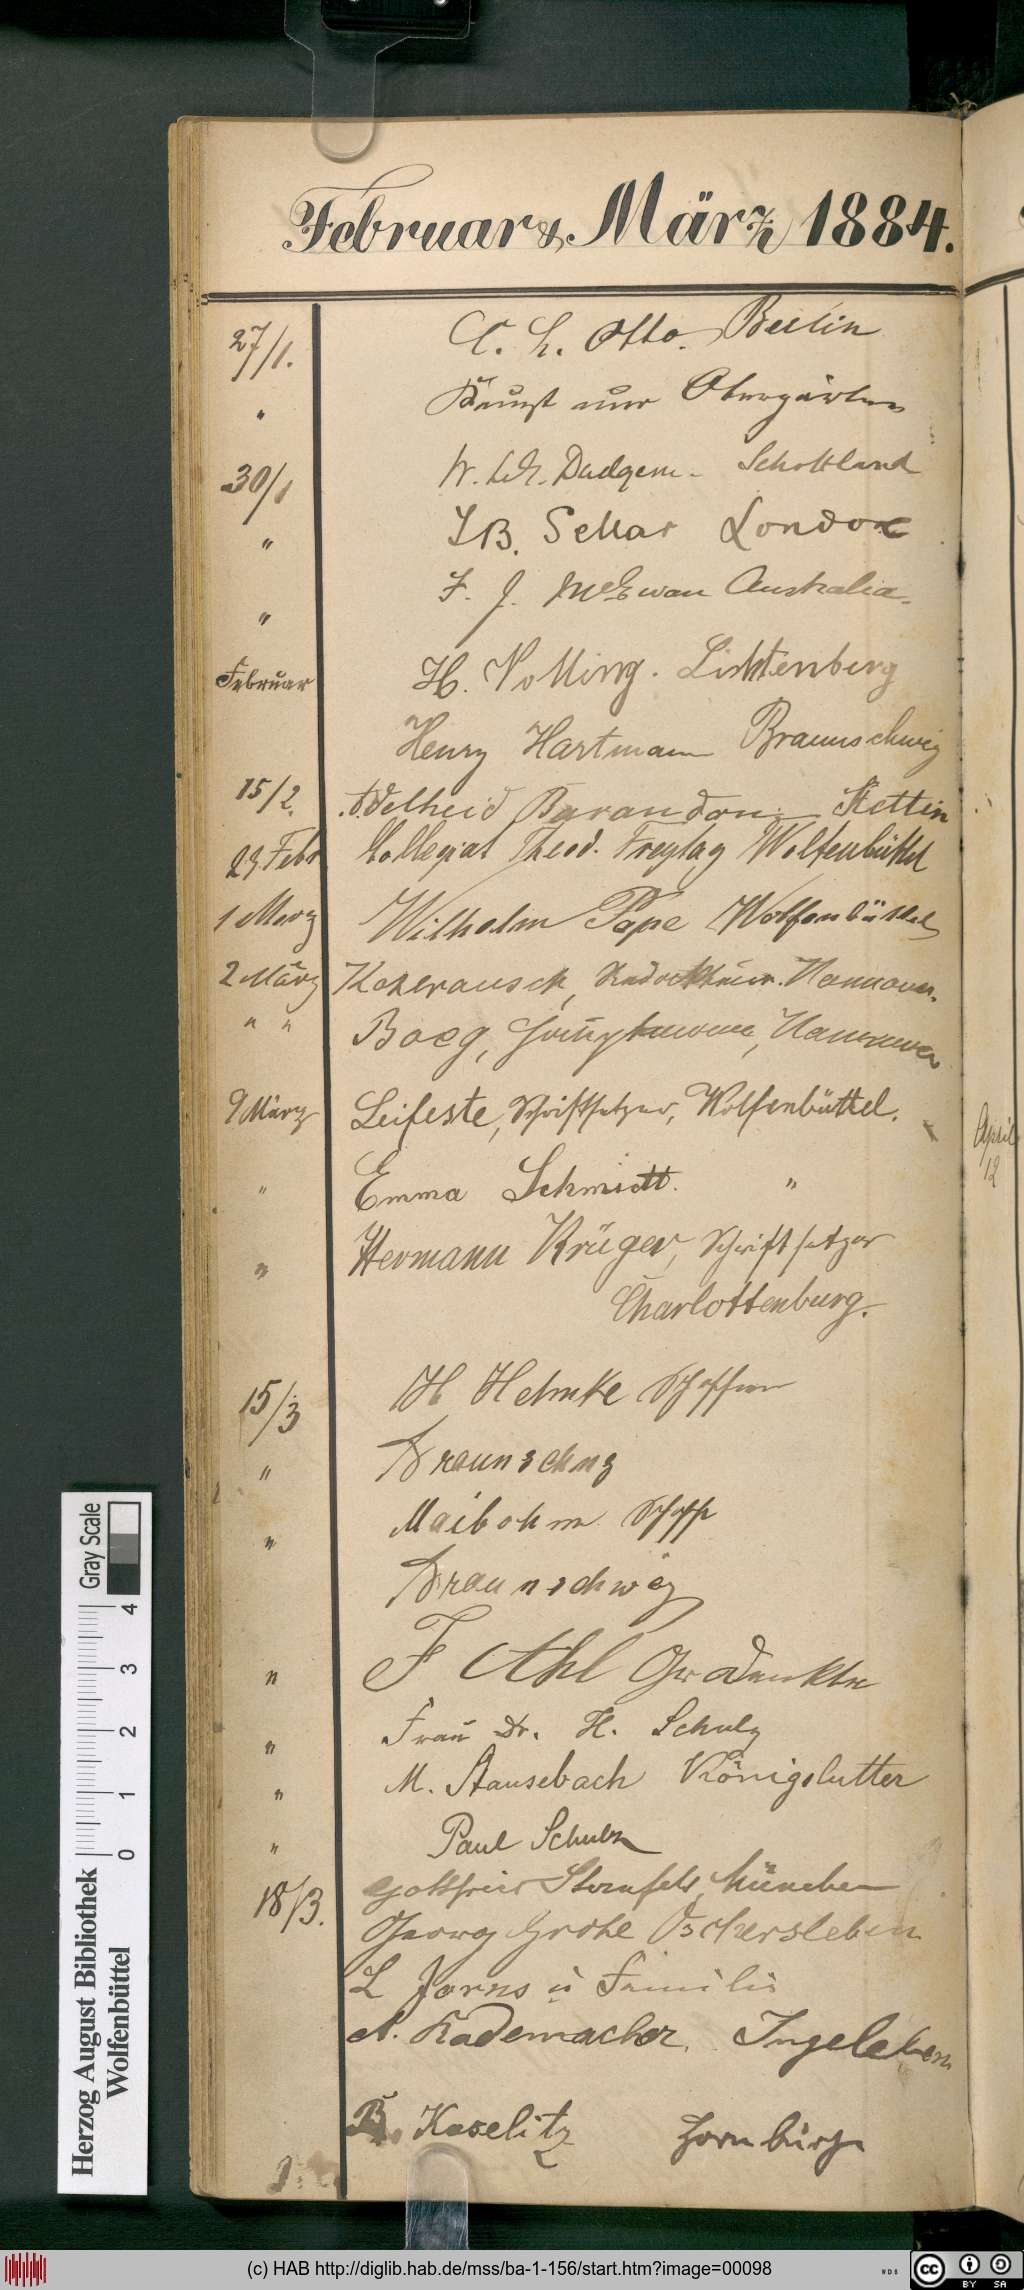 Februar & März 1884.
27/1. C. H. Otto. Berlin
"
30/1 W. Dudgeon - Schottland
" J B. Sellar London
" F. J. McEwan Australia.
Februar H. Nolting. Lichtenberg
Henry Hartmann Braunschweig
15/2. Adelheid Barandon Stettin
29 Febr Collegiat Theod. Freytag Wolfenbüttel
1 Merz Wilhelm Pape Wolfenbüttel
2 März Kohlrausch, Hannover.
" " Boeg, Hannover
9 März Leifeste, Schriftsetzer, Wolfenbüttel.
" Emma Schmidt. "
" Hermann Krüger, Schriftsetzer
Charlottenburg.
15/3 H Helmke
" Braunschwg
" Maibohm
Braunschweig
" F Ahl
" Frau Dr. H. Schulz
" M. Stausebach Königslutter
" Paul Schulz
18/3. Gottfried München
Georg Grohe Oschersleben
L Jorns u Familie
A. Rademacher. Ingeleben
B. Koselitz Hornburg
April
12
Herzog August Bibliothek
Wolfenbüttel
Gray Scale
0 1 2 3 4
(c) HAB http://diglib.hab.de/mss/ba-1-156/start.htm?image=00098
WDB
cc BY SA